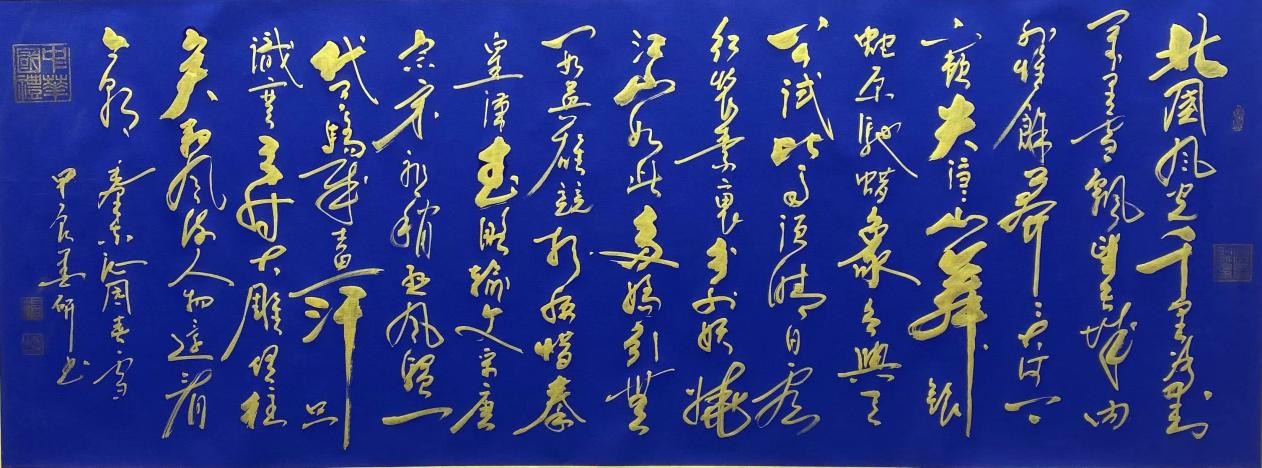 北国风光千里冰封
万里雪飘望长城内
外惟餘莽莽大河上
下頓失滔滔山舞銀
蛇原驰蜡象欲與天
公试比高须晴日看
红装素裹分外妖娆
江山如此多娇引無
数英雄競折腰惜秦
皇漢武略输文采唐
宗宋祖稍逊风骚一
代天骄成吉思汗只
識弯弓射大雕俱往
矣数风流人物還看
今朝 毛泽东沁園春雪
甲辰墨研书
中華國禮